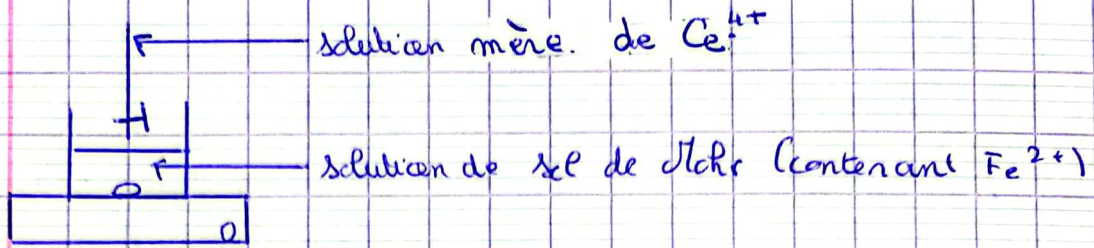 solution mère. de Ce⁴⁺
solution de sel de Mohr (contenant Fe²⁺)